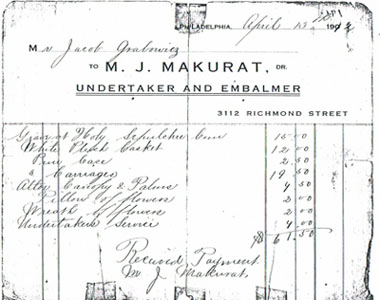 PHILADELPHIA, April 13 190
Mr Jacob Grabowicz
TO M. J. MAKURAT, DR.
UNDERTAKER AND EMBALMER
3112 RICHMOND STREET
Grave at Holy Sepulchre Cem 15 00
White Plush Casket 12 00
Pine Case 2 50
Carriages 19 50
Altar Canopy & Palms 4 50
Pillow of flowers 2 00
Wreath of flowers 2 00
Undertakers Service 4 00
61.50
Received Payment
M J Makurat